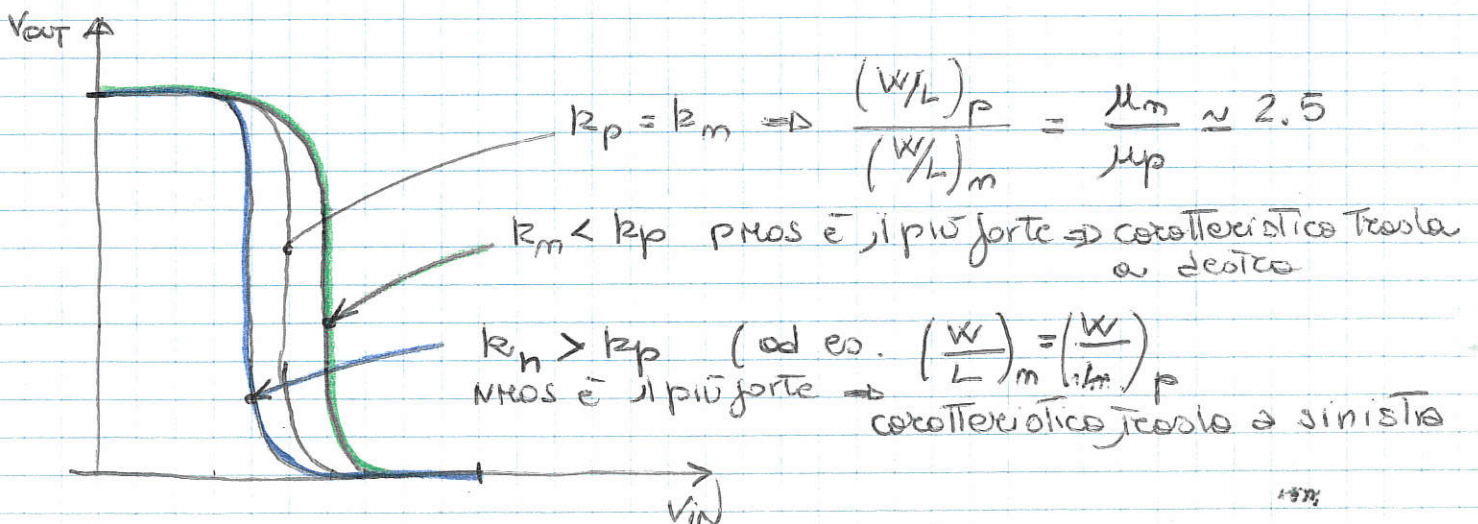 VOUT
kp = kn ⇒ (W/L)p / (W/L)n = μn / μp ≃ 2.5
kn < kp pMOS è il più forte ⇒ caratteristica trasla
a destra
kn > kp (ad es. (W/L)n = (W/L)p
NMOS è il più forte ⇒
caratteristica trasla a sinistra
VIN